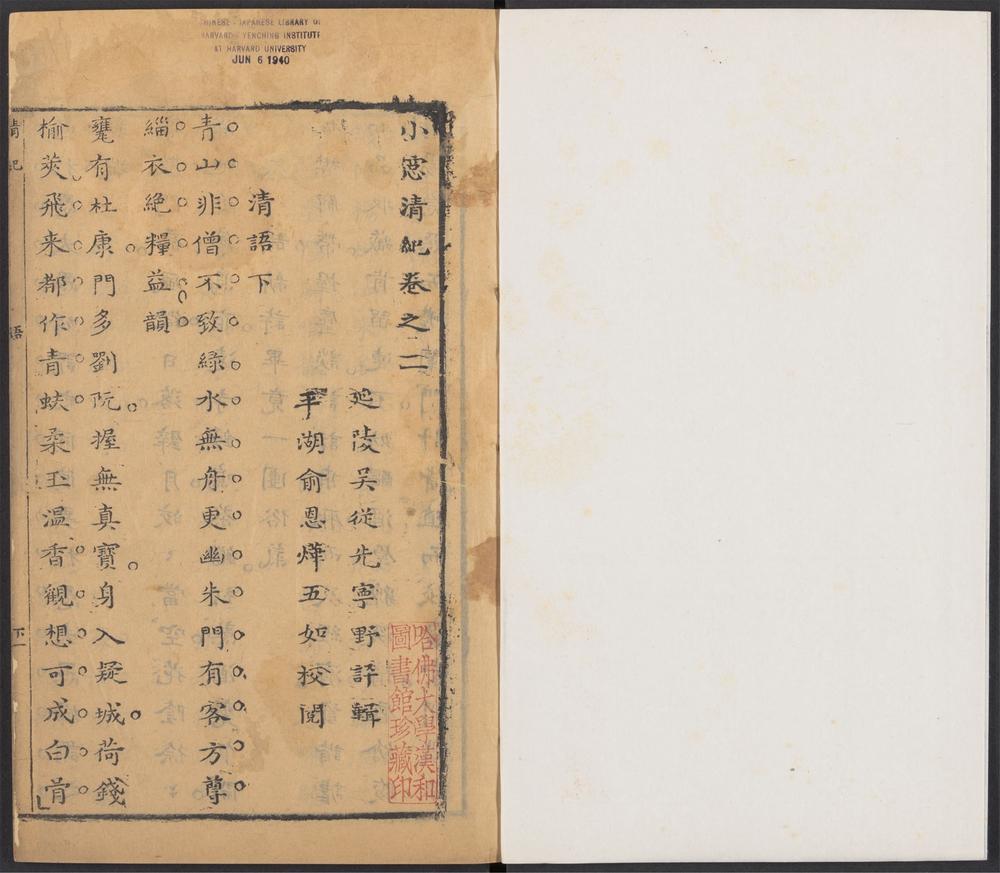 CHINESE - JAPANESE LIBRARY OF
HARVARD - YENCHING INSTITUTE
AT HARVARD UNIVERSITY
JUN 6 1940
小窓清紀卷之二
延陵吳從先寧野評輯
平湖俞恩燁五如校閱
哈佛大學漢和
圖書館珍藏印
清語下
青山非僧不致綠水無舟更幽朱門有客方尊
緇衣絕糧益韻
甕有杜康門多劉阮握無真寶身入疑城荷錢
榆莢飛来都作青蚨柔玉溫香觀想可成白骨
清紀
語
下一